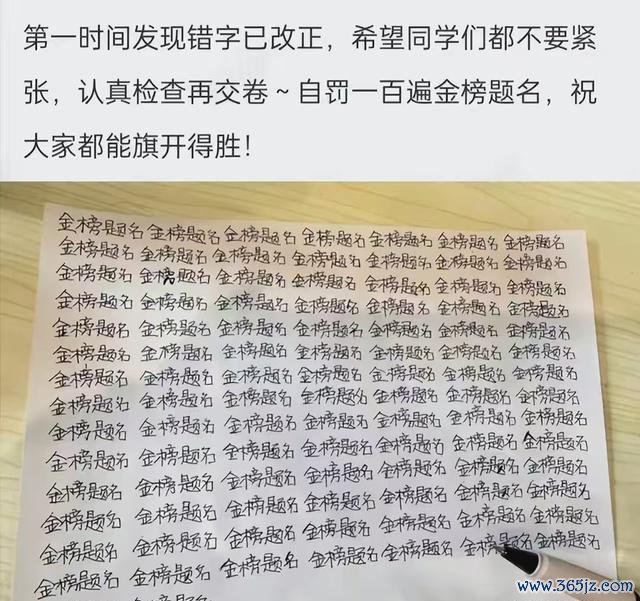 第一时间发现错字已改正，希望同学们都不要紧
张，认真检查再交卷～自罚一百遍金榜题名，祝
大家都能旗开得胜！
金榜题名 金榜题名 金榜题名 金榜题名 金榜题名 金榜题名 金榜题名
金榜题名 金榜题名 金榜题名 金榜题名 金榜题名 金榜题名 金榜题名
金榜题名 金榜题名 金榜题名 金榜题名 金榜题名 金榜题名 金榜题名
金榜题名 金榜题名 金榜题名 金榜题名 金榜题名 金榜题名 金榜题名
金榜题名 金榜题名 金榜题名 金榜题名 金榜题名 金榜题名 金榜题名
金榜题名 金榜题名 金榜题名 金榜题名 金榜题名 金榜题名 金榜题名
金榜题名 金榜题名 金榜题名 金榜题名 金榜题名 金榜题名 金榜题名
金榜题名 金榜题名 金榜题名 金榜题名 金榜题名 金榜题名 金榜题名
金榜题名 金榜题名 金榜题名 金榜题名 金榜题名 金榜题名 金榜题名
金榜题名 金榜题名 金榜题名 金榜题名 金榜题名 金榜题名 金榜题名
金榜题名 金榜题名 金榜题名 金榜题名 金榜题名 金榜题名 金榜题名
金榜题名 金榜题名 金榜题名 金榜题名 金榜题名 金榜题名 金榜题名
金榜题名 金榜题名 金榜题名 金榜题名 金榜题名 金榜题名 金榜题名
金榜题名 金榜题名 金榜题名 金榜题名 金榜题名 金榜题名 金榜题名
www.365jz.com